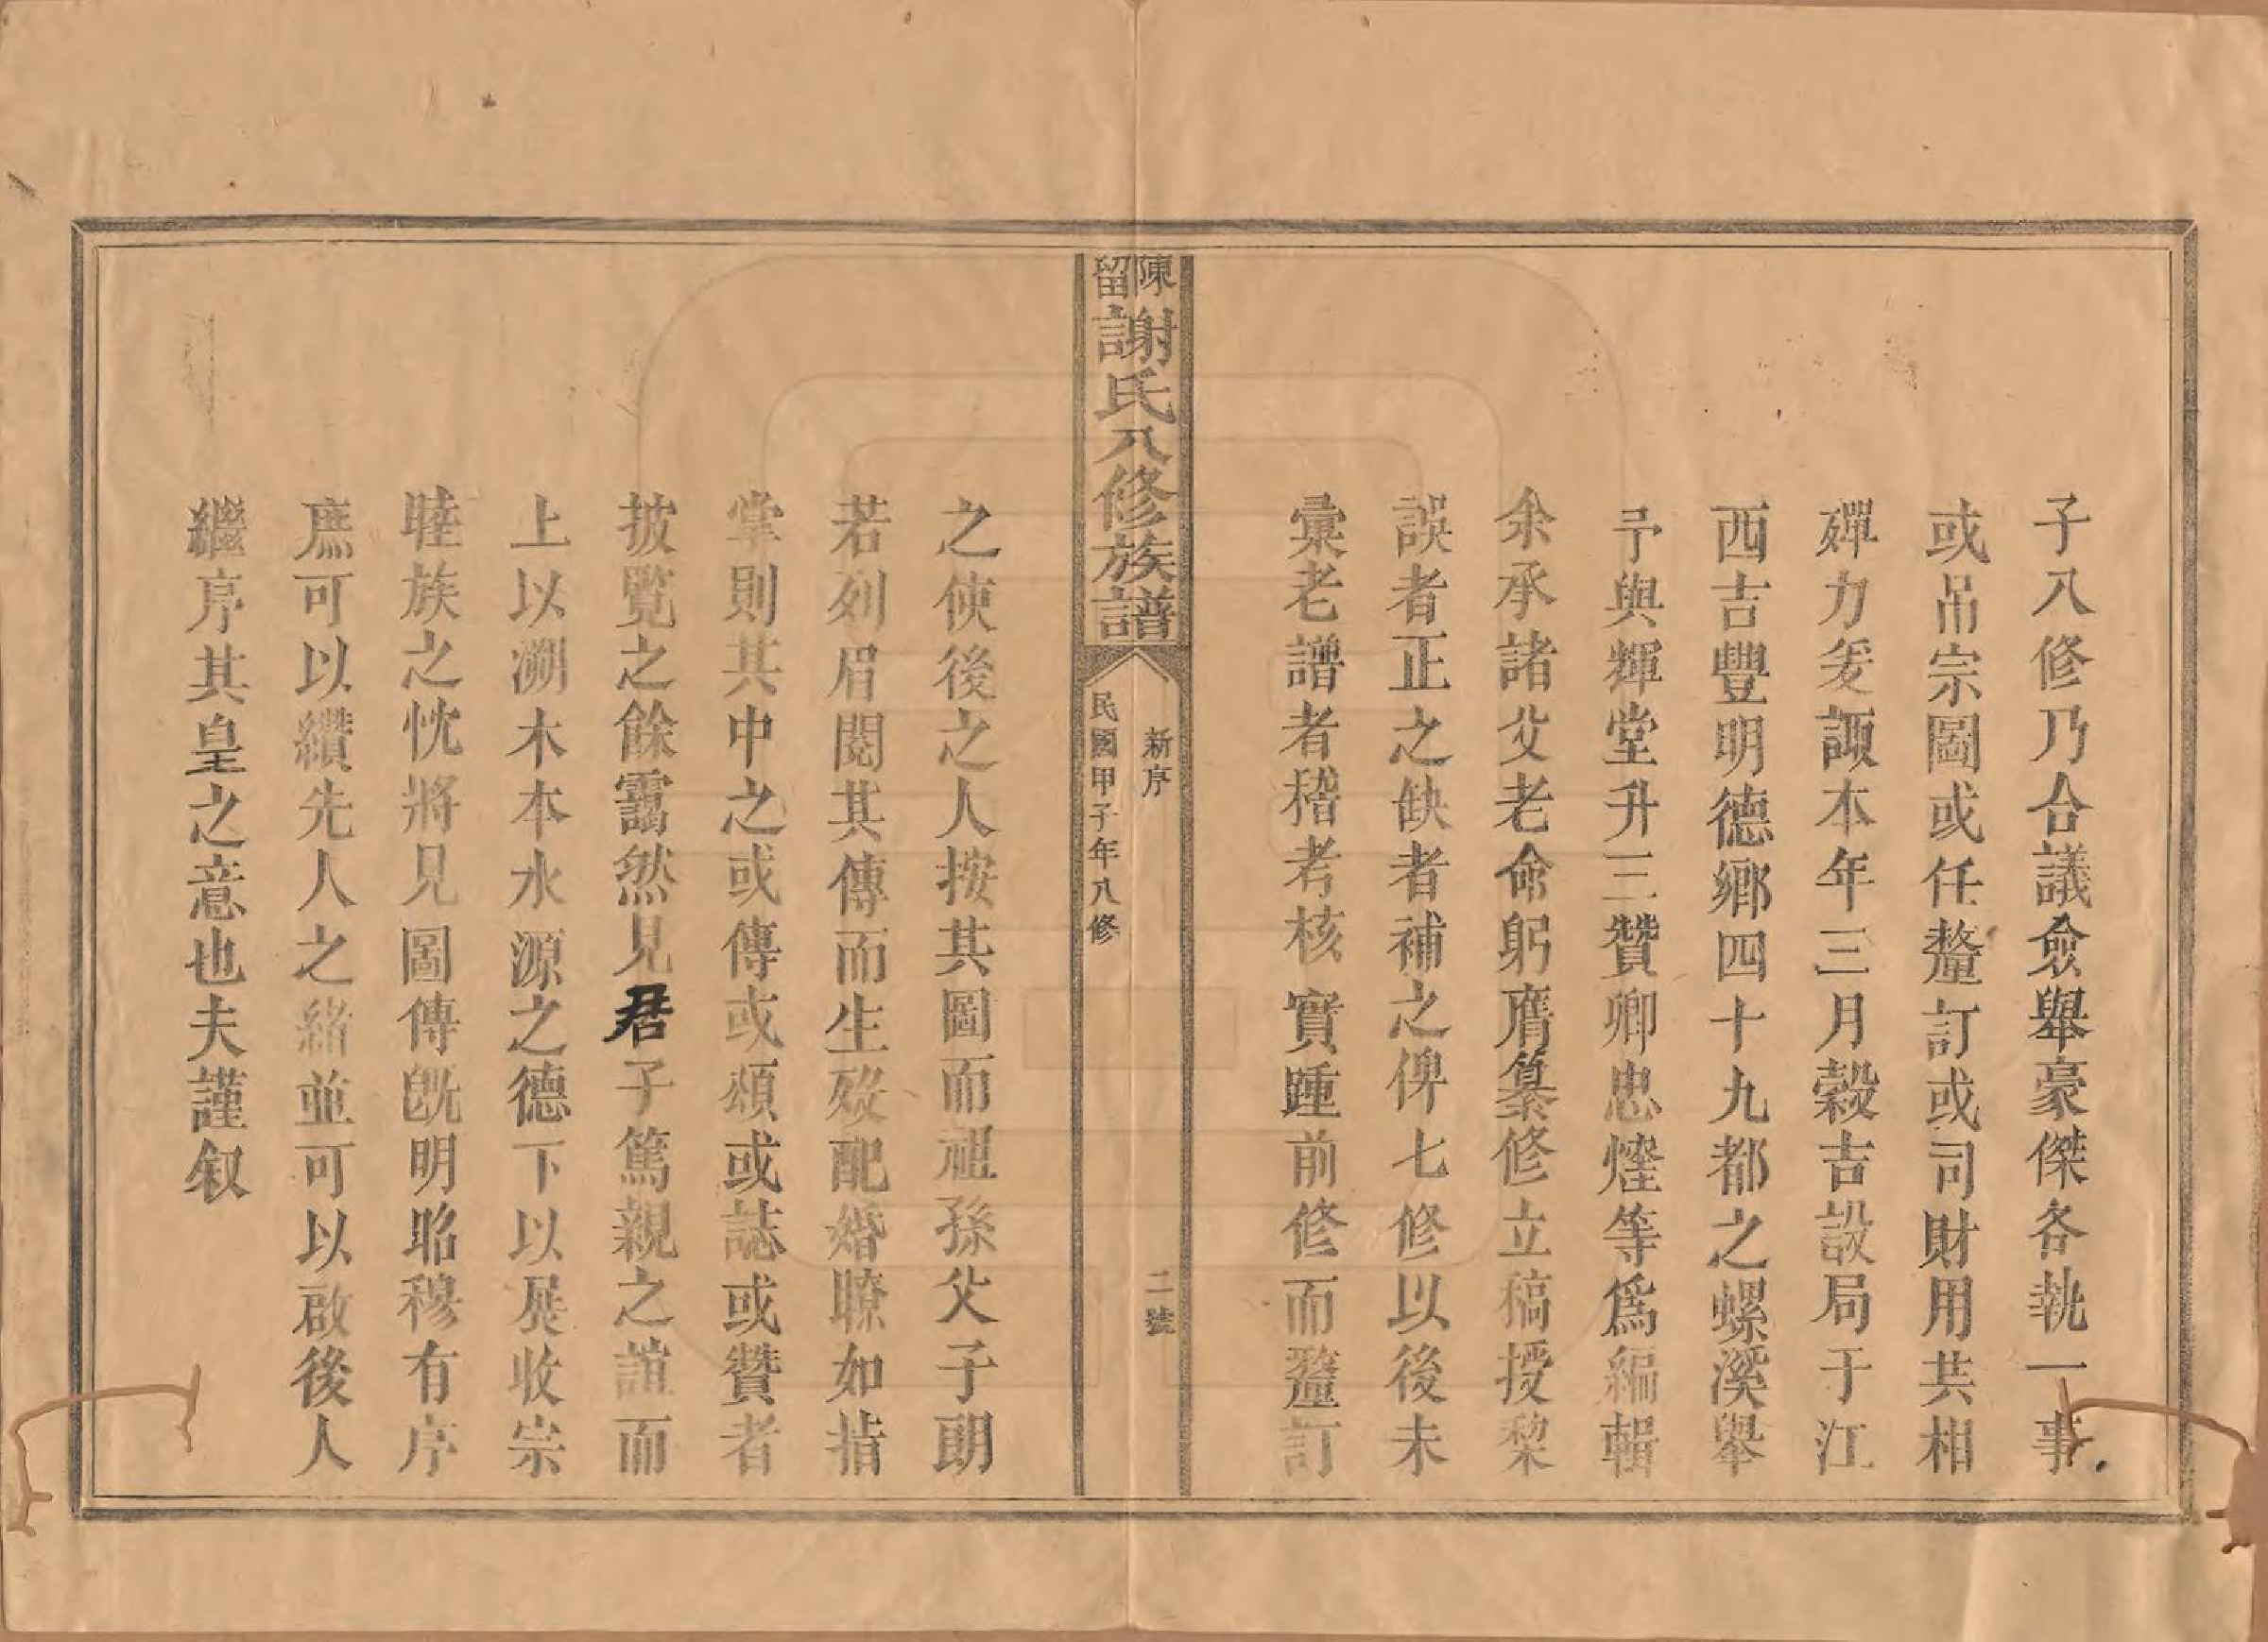 子八修乃合議僉舉豪傑各執一事
或吊宗圖或任釐訂或司財用共相
殫力爰諏本年三月穀吉設局于江
西吉豐明德鄉四十九都之螺溪舉
予與輝堂升三贊卿忠煃等爲編輯
余承諸父老命躬膺纂修立稿授棃
誤者正之缺者補之俾七修以後未
彙老譜者稽考核實踵前修而釐訂
陳留謝氏八修族譜
新序
二號
民國甲子年八修
之使後之人按其圖而祖孫父子朗
若列眉閱其傳而生殁配婚瞭如指
掌則其中之或傳或頌或誌或贊者
披覽之餘靄然見君子篤親之誼而
上以溯木本水源之德下以展收宗
睦族之忱將見圖傳旣明昭穆有序
庶可以纘先人之緒並可以啟後人
繼序其皇之意也夫謹叙